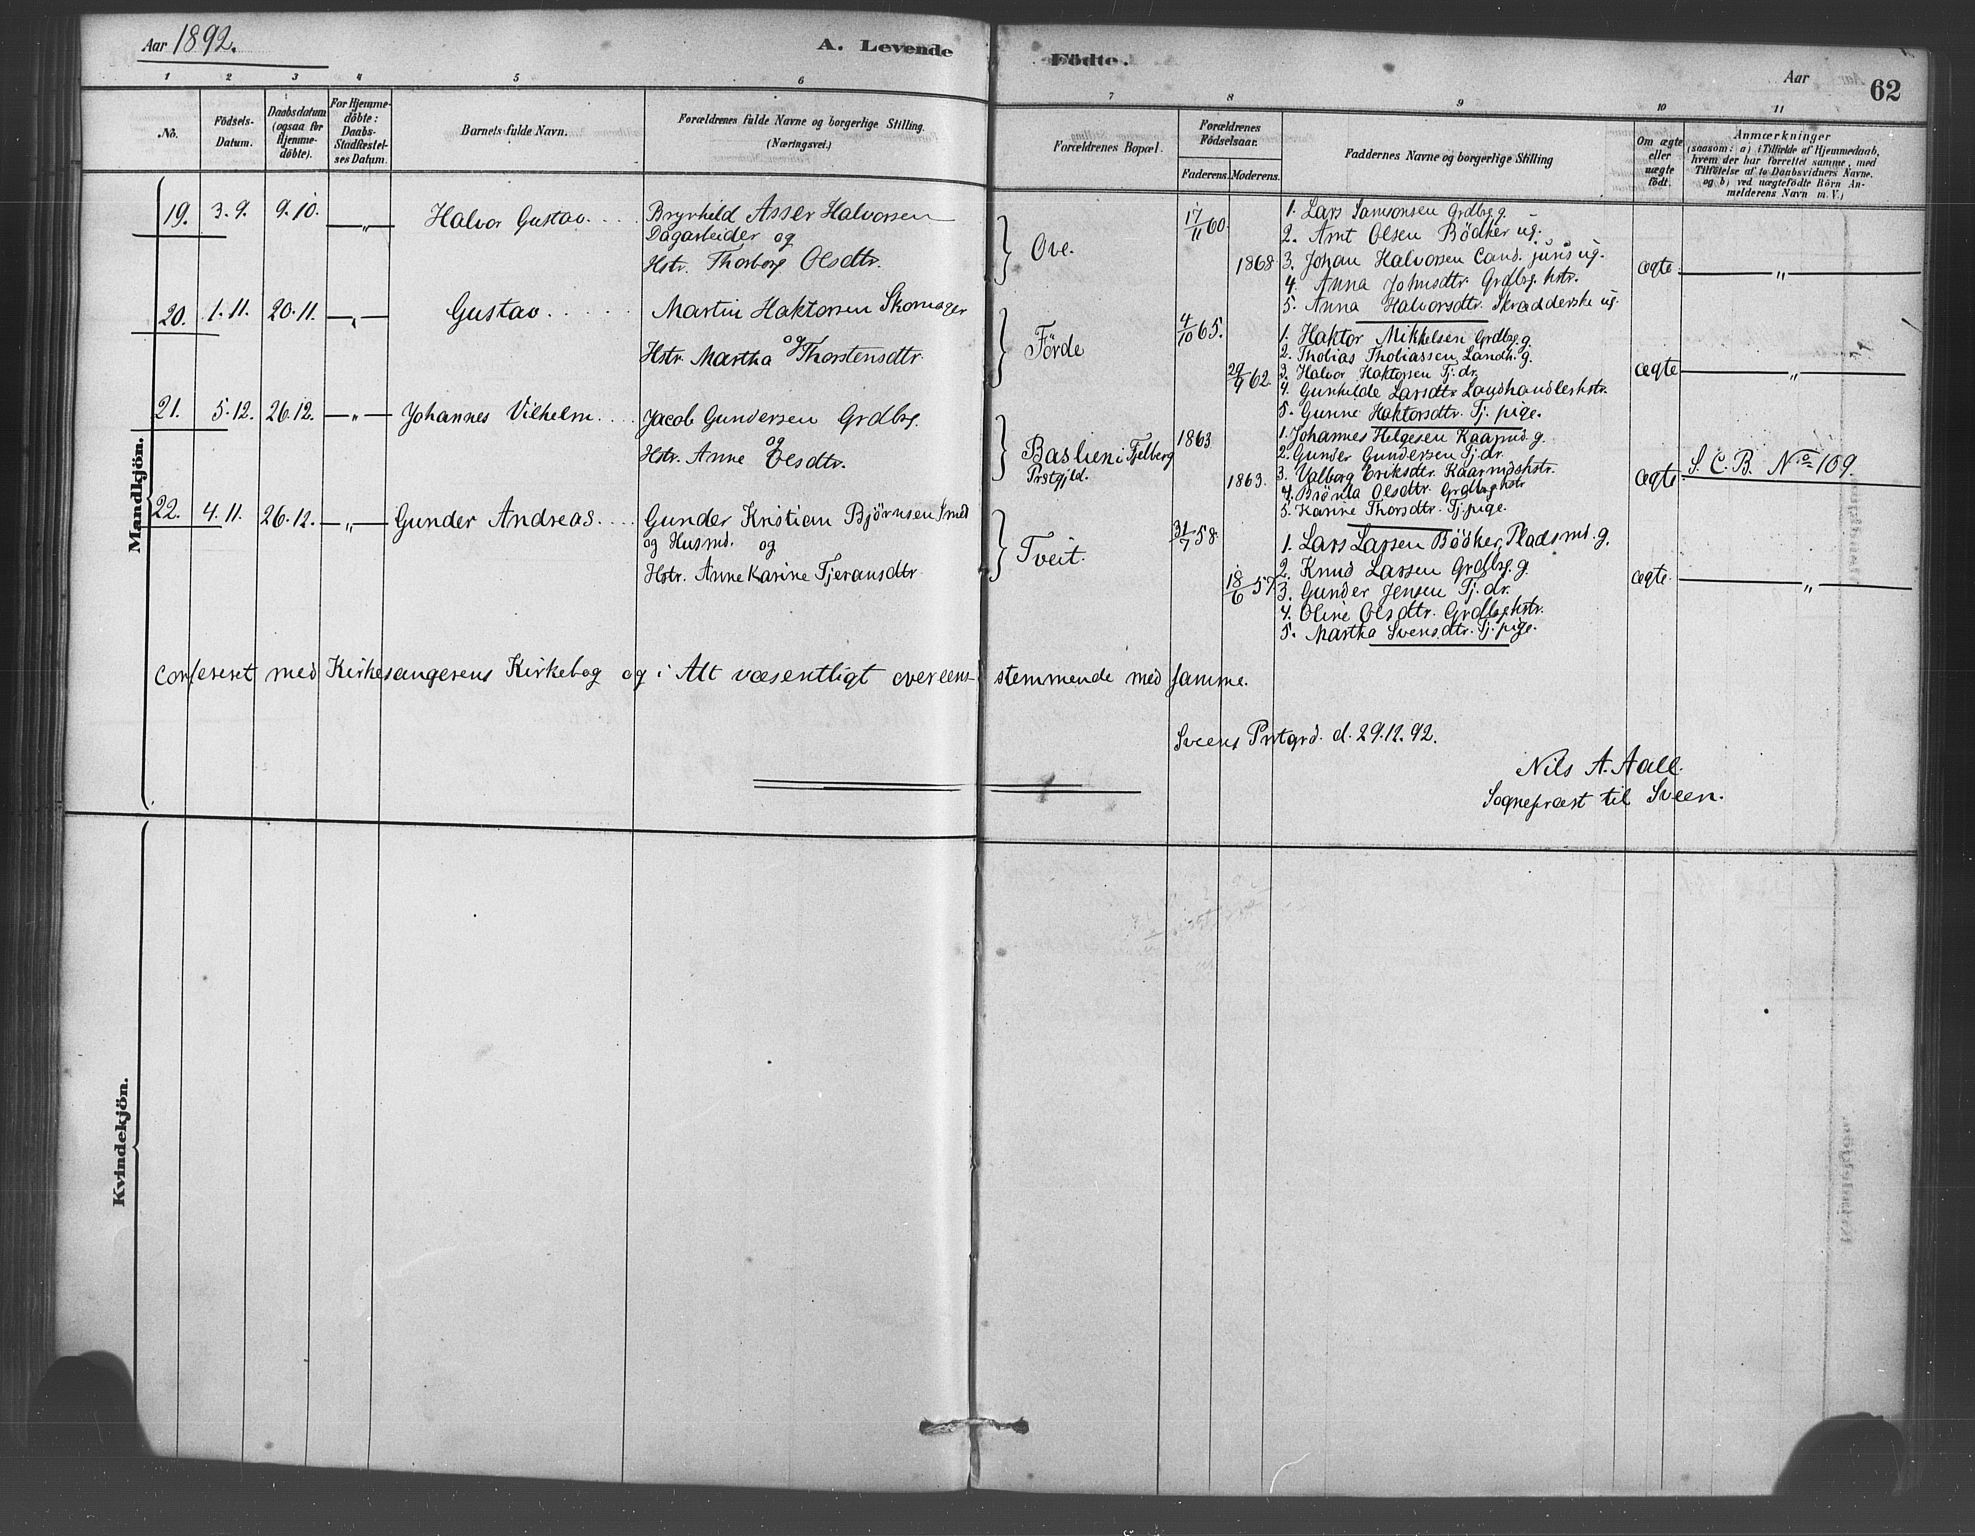 Aar 1892.
A. Levende Födte.
Aar
62
1 2 3 4 5 6 7 8 9 10 11
No.
Födsels-
Datum.
Daabsdatum
(ogsaa for
Hjemme-
döbte).
For Hjemme-
döbte:
Daabs-
Stadfæstel-
ses Datum.
Barnets fulde Navn.
Forældrenes fulde Navne og borgerlige Stilling.
(Næringsvei.)
Forældrenes Bopæl.
Forældrenes
Födselsaar.
Faderens. Moderens.
Faddernes Navne og borgerlige Stilling
Om ægte
eller
uægte
födt.
Anmærkninger
(saasom: a) i Tilfælde af Hjemmedaab,
hvem der har forrettet samme, med
Tilföielse af to Daabsvidners Navne.
og b) ved uægtefödte Börn An-
melderens Navn m. V.)
Mandkjön.
19. 3.9. 9.10. — „ — Halvor Gustav. . . .
Bryrhild Asser Halvorsen
Dagarbeider og
Hstr. Thorborg Olsdtr.
Ove.
17/11 60.
1868
1. Lars Samsonsen Grdbg. g.
2. Arnt Olsen Bödker ug.
3. Johan Halvorsen Cand. juris ug.
4. Anna Johnsdtr. Grdbg. hstr.
5. Anna Halvorsdtr. Skrædderske ug.
ægte — „ —
20. 1.11. 20.11. — „ — Gustav . . . . .
Martin Haktorsen Skomager
og
Hstr. Martha Thorstensdtr.
Förde
4/10 65.
29/9 62.
1. Haktor Mikkelsen Grdbg. g.
2. Thobias Thobiassen, Landh. g.
3. Halvor Haktorsen Tj. dr.
4. Gunhilde Larsdtr. Landhandlerhstr.
5. Gunne Haktorsdtr. Tj. pige.
ægte — „ —
21. 5.12. 26.12. — „ — Johannes Vilhelm. . . .
Jacob Gundersen Grdbg.
og
Hstr. Anne Olsdtr.
Baslien i Fjelberg
Prstgjld.
1863
1863.
1. Johannes Helgesen Kaarmd. g.
2. Gunder Gundersen Tj. dr.
3. Valborg Eriksdtr. Kaarmdshstr.
4. Brönla Olsdtr. Grdbg. hstr
5. Karine Thorsdtr. Tj. pige.
ægte S. C. B. No 109.
22. 4.11. 26.12. — „ — Gunder Andreas. . . .
Gunder Kristian Björnsen Smed
og Husmd. og
Hstr. Anne Karine Tjeransdtr.
Tveit.
31/7 58.
18/6 57
1. Lars Larsen Bödker, Pladsmd. g.
2. Knud Larsen Grdbg. g.
3. Gunder Jensen Tj. dr.
4. Oline Olsdtr. Grdbg. hstr.
5. Martha Svensdtr. Tj. pige.
ægte. — „ —
Confereret med Kirkesangerens Kirkebog og i Alt væsentligt overeens- stemmende med samme.
Sveens Prstgrd. d. 29.12.92.
Nils A. Aall.
Sognepræst til Sveen.
Kvindekjön.